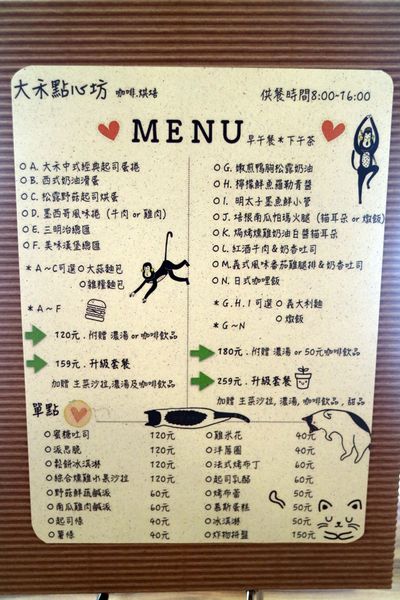 大禾點心坊 咖啡.烘焙
供餐時間8:00-16:00
MENU 早午餐*下午茶
A. 大禾中式經典起司蛋捲
B. 西式奶油滑蛋
C. 松露野菇起司烘蛋
D. 墨西哥風味捲 (牛肉 or 雞肉)
E. 三明治總匯
F. 美味漢堡總匯
* A~C可選 大蒜麵包
雜糧麵包
* A~F
120元 . 附贈 濃湯 or 咖啡飲品
159元 . 升級套餐
加贈 生菜沙拉,濃湯及咖啡飲品
G. 嫩煎鴨胸松露奶油
H. 檸檬鮮魚羅勒青醬
I. 明太子墨魚鮮小管
J. 培根南瓜怡瑪火腿 (貓耳朵 or 燉飯)
K. 焗烤燻雞奶油白醬貓耳朵
L. 紅酒牛肉&奶香吐司
M.義式風味番茄雞腿排&奶香吐司
N. 日式咖哩飯
* G.H.I 可選 義大利麵
燉飯
* G~N
180元 . 附贈 濃湯 or 50元咖啡飲品
259元 . 升級套餐
加贈 生菜沙拉, 濃湯, 咖啡飲品, 甜品
單點
蜜糖吐司 120元
派思脆 120元
鬆餅冰淇淋 120元
綜合燻雞水果沙拉 120元
野菇鮮蔬鹹派 60元
南瓜雞肉鹹派 60元
起司條 40元
薯條 40元
雞米花 40元
洋蔥圈 40元
法式烤布丁 60元
起司乳酪 60元
烤布蕾 50元
慕斯蛋糕 50元
冰淇淋 50元
炸物拼盤 150元